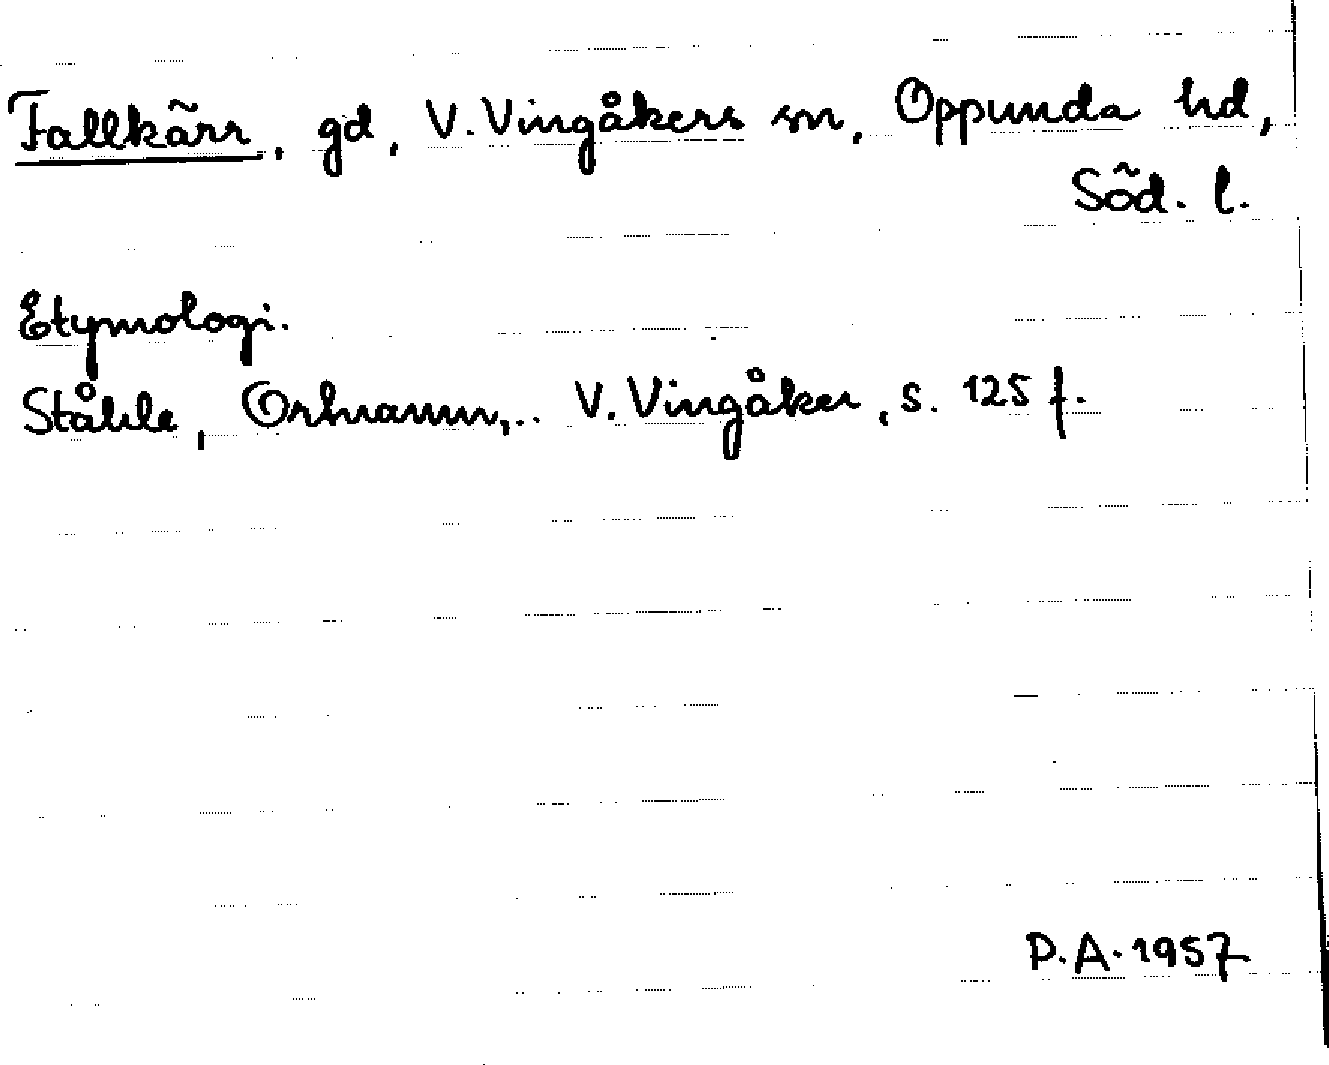 Fallkärr, gd, V. Vingåkers sn, Oppunda hd,
Söd. l.
Etymologi.
Ståhle, Ortnamn... V. Vingåker, s. 125 f.
P.A. 1957